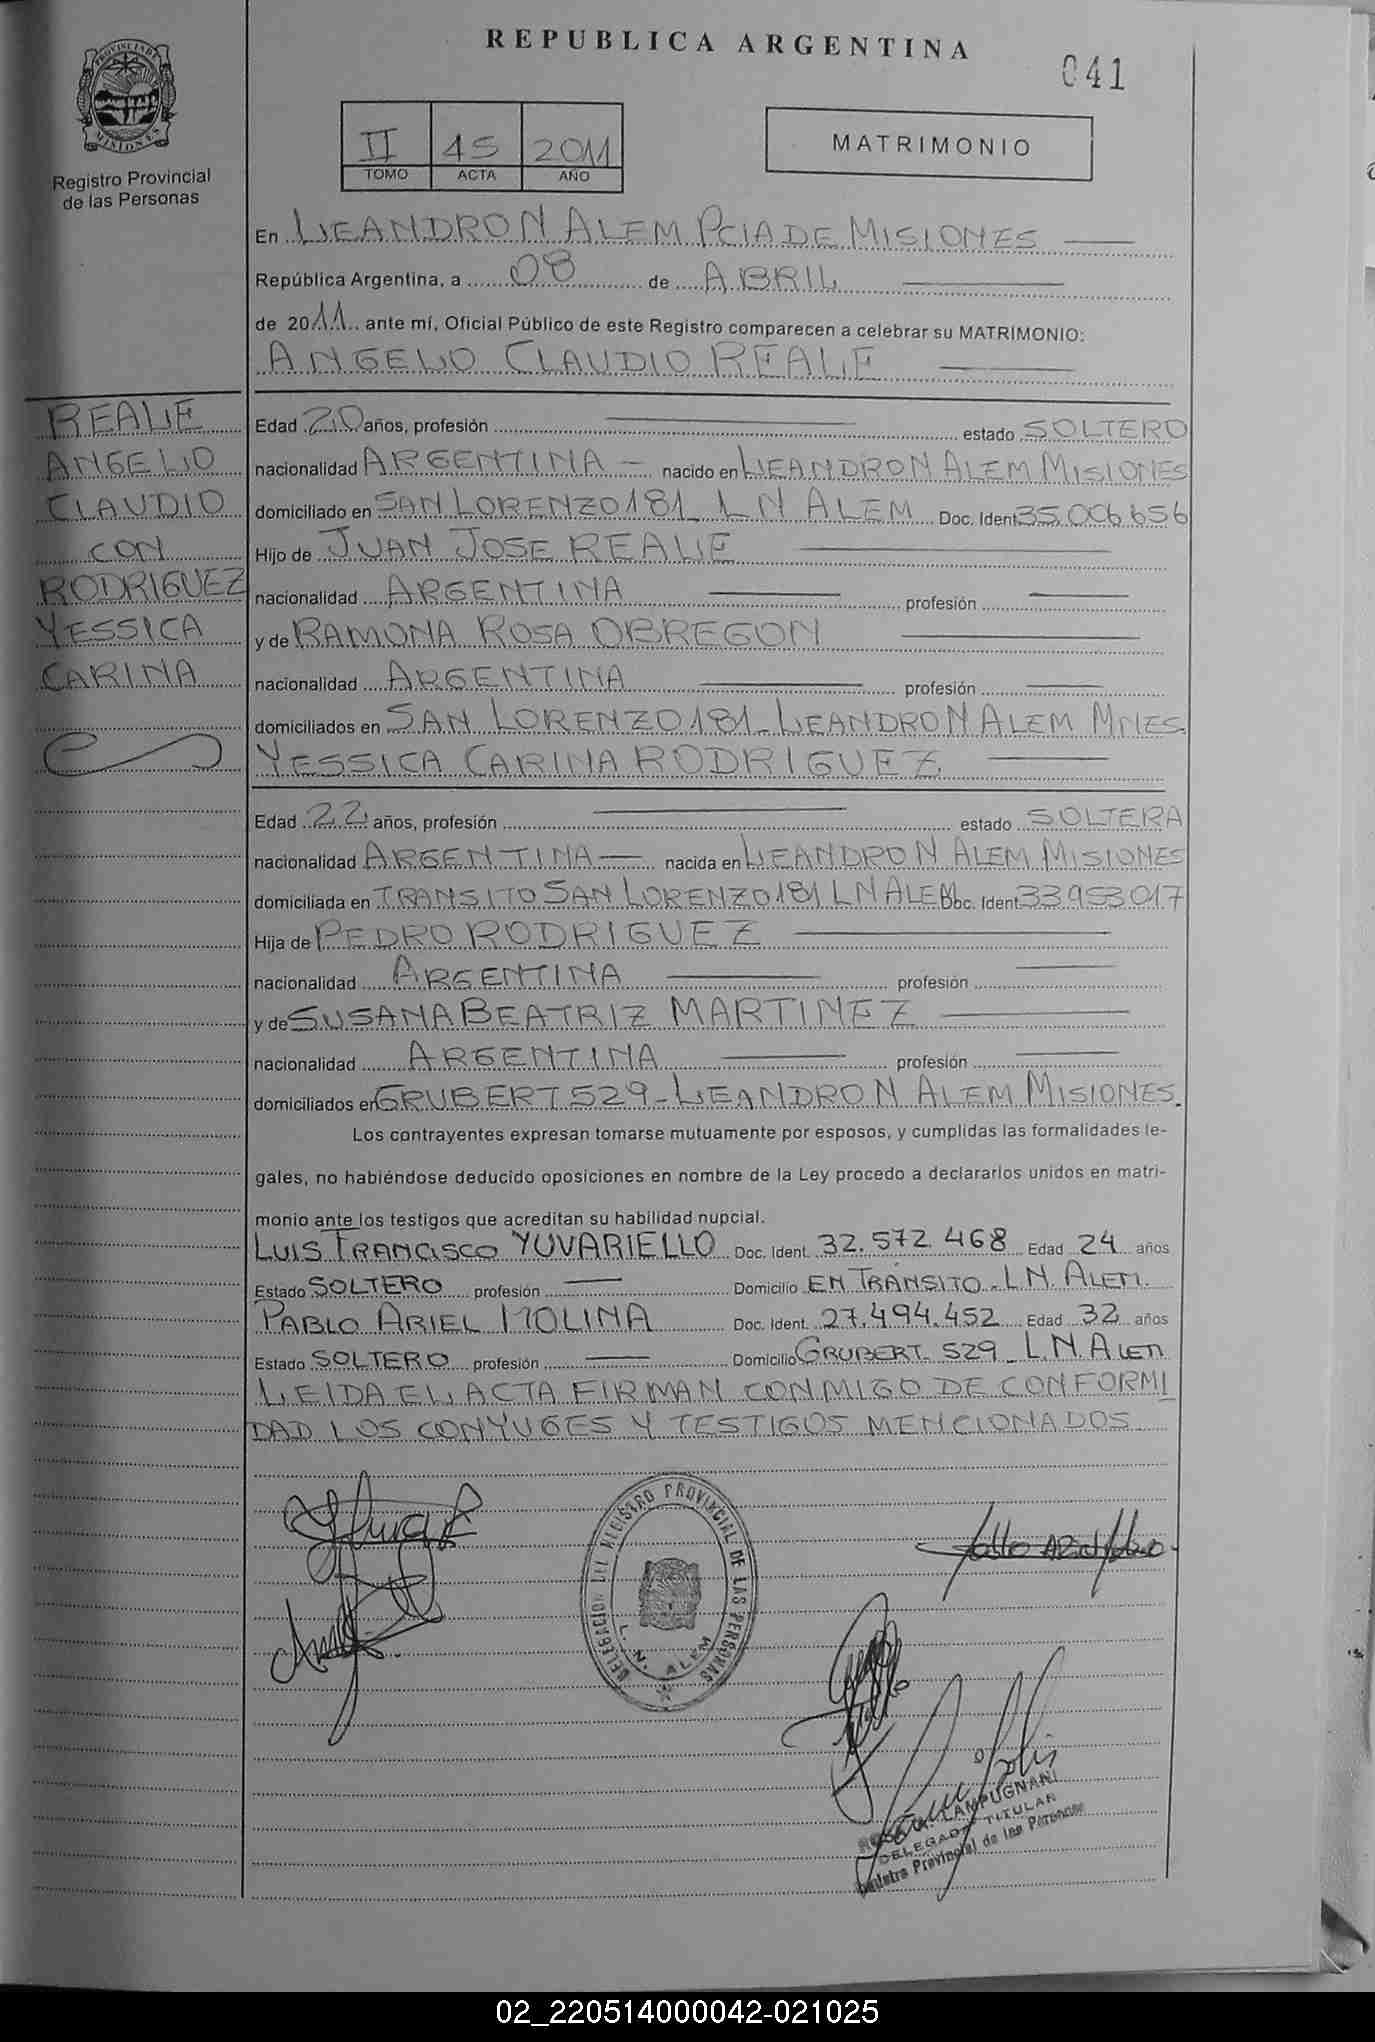 REPUBLICA ARGENTINA
041
PROVINCIA DE MISIONES
Registro Provincial
de las Personas
II 45 2011
TOMO ACTA AÑO
MATRIMONIO
En LEANDRO N ALEM PCIA DE MISIONES
República Argentina, a 08 de ABRIL
de 2011 ante mí, Oficial Público de este Registro comparecen a celebrar su MATRIMONIO:
ANGELO CLAUDIO REALE
REALE
ANGELO
CLAUDIO
CON
RODRIGUEZ
YESSICA
CARINA
Edad 20 años, profesión estado SOLTERO
nacionalidad ARGENTINA - nacido en LEANDRO N ALEM MISIONES
domiciliado en SAN LORENZO 181 L N ALEM Doc. Ident 35.006656
Hijo de JUAN JOSE REALE
nacionalidad ARGENTINA profesión
y de RAMONA ROSA OBREGON
nacionalidad ARGENTINA profesión
domiciliados en SAN LORENZO 181 - LEANDRO N ALEM MNES.
YESSICA CARINA RODRIGUEZ
Edad 22 años, profesión estado SOLTERA
nacionalidad ARGENTINA - nacida en LEANDRO N ALEM MISIONES
domiciliada en TRANSITO SAN LORENZO 181 L N ALEM Doc. Ident 33953017
Hija de PEDRO RODRIGUEZ
nacionalidad ARGENTINA profesión
y de SUSANA BEATRIZ MARTINEZ
nacionalidad ARGENTINA profesión
domiciliados en GRUBERT 529 - LEANDRO N ALEM MISIONES.
Los contrayentes expresan tomarse mutuamente por esposos, y cumplidas las formalidades le-
gales, no habiéndose deducido oposiciones en nombre de la Ley procedo a declararlos unidos en matri-
monio ante los testigos que acreditan su habilidad nupcial.
LUIS FRANCISCO YUVARIELLO Doc. Ident. 32.572.468 Edad 24 años
Estado SOLTERO profesión Domicilio EN TRANSITO - L N. ALEM.
PABLO ARIEL MOLINA Doc. Ident. 27.494.452 Edad 32 años
Estado SOLTERO profesión Domicilio GRUBERT 529 - L.N. ALEM
LEIDA EL ACTA FIRMAN CONMIGO DE CONFORMI
DAD LOS CONYUGES Y TESTIGOS MENCIONADOS
DELEGACION DEL REGISTRO PROVINCIAL DE LAS PERSONAS
L. N. ALEM
LAMPUGNANI
DELEGADA TITULAR
Registro Provincial de las Personas
02_220514000042-021025